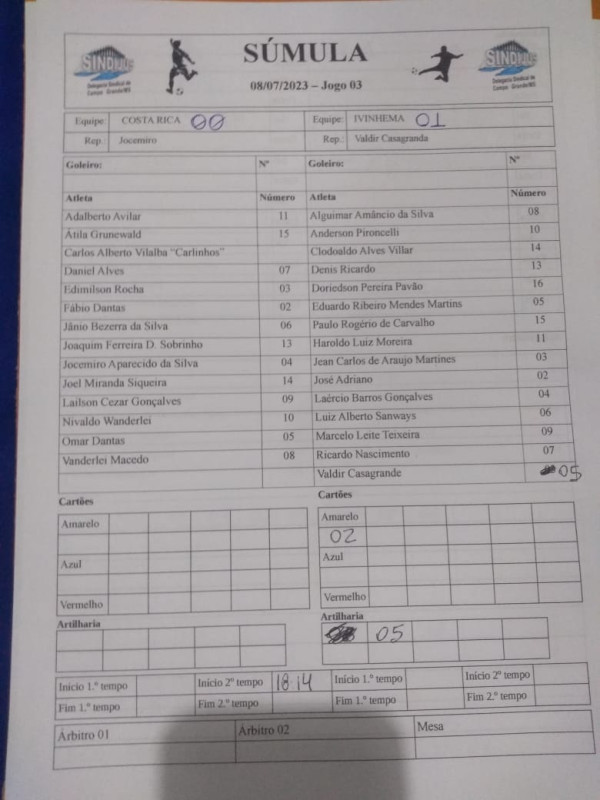 SINDJUS
Delegacia Sindical de
Campo Grande/MS
SÚMULA
08/07/2023 – Jogo 03
SINDJUS
Delegacia Sindical de
Campo Grande/MS
Equipe: COSTA RICA 00 Equipe: IVINHEMA 01
Rep.: Jocemiro Rep.: Valdir Casagranda
Goleiro: Nº Goleiro: Nº
Atleta Número Atleta Número
Adalberto Avilar 11 Alguimar Amâncio da Silva 08
Átila Grunewald 15 Anderson Pironcelli 10
Carlos Alberto Vilalba “Carlinhos” Clodoaldo Alves Villar 14
Daniel Alves 07 Denis Ricardo 13
Edimilson Rocha 03 Doriedson Pereira Pavão 16
Fábio Dantas 02 Eduardo Ribeiro Mendes Martins 05
Jânio Bezerra da Silva 06 Paulo Rogério de Carvalho 15
Joaquim Ferreira D. Sobrinho 13 Haroldo Luiz Moreira 11
Jocemiro Aparecido da Silva 04 Jean Carlos de Araujo Martines 03
Joel Miranda Siqueira 14 José Adriano 02
Lailson Cezar Gonçalves 09 Laércio Barros Gonçalves 04
Nivaldo Wanderlei 10 Luiz Alberto Sanways 06
Omar Dantas 05 Marcelo Leite Teixeira 09
Vanderlei Macedo 08 Ricardo Nascimento 07
Valdir Casagrande 05
Cartões Cartões
Amarelo Amarelo
02
Azul Azul
Vermelho Vermelho
Artilharia Artilharia
05
Início 1.º tempo Início 2º tempo 18:14 Início 1.º tempo Início 2º tempo
Fim 1.º tempo Fim 2.º tempo Fim 1.º tempo Fim 2.º tempo
Árbitro 01 Árbitro 02 Mesa